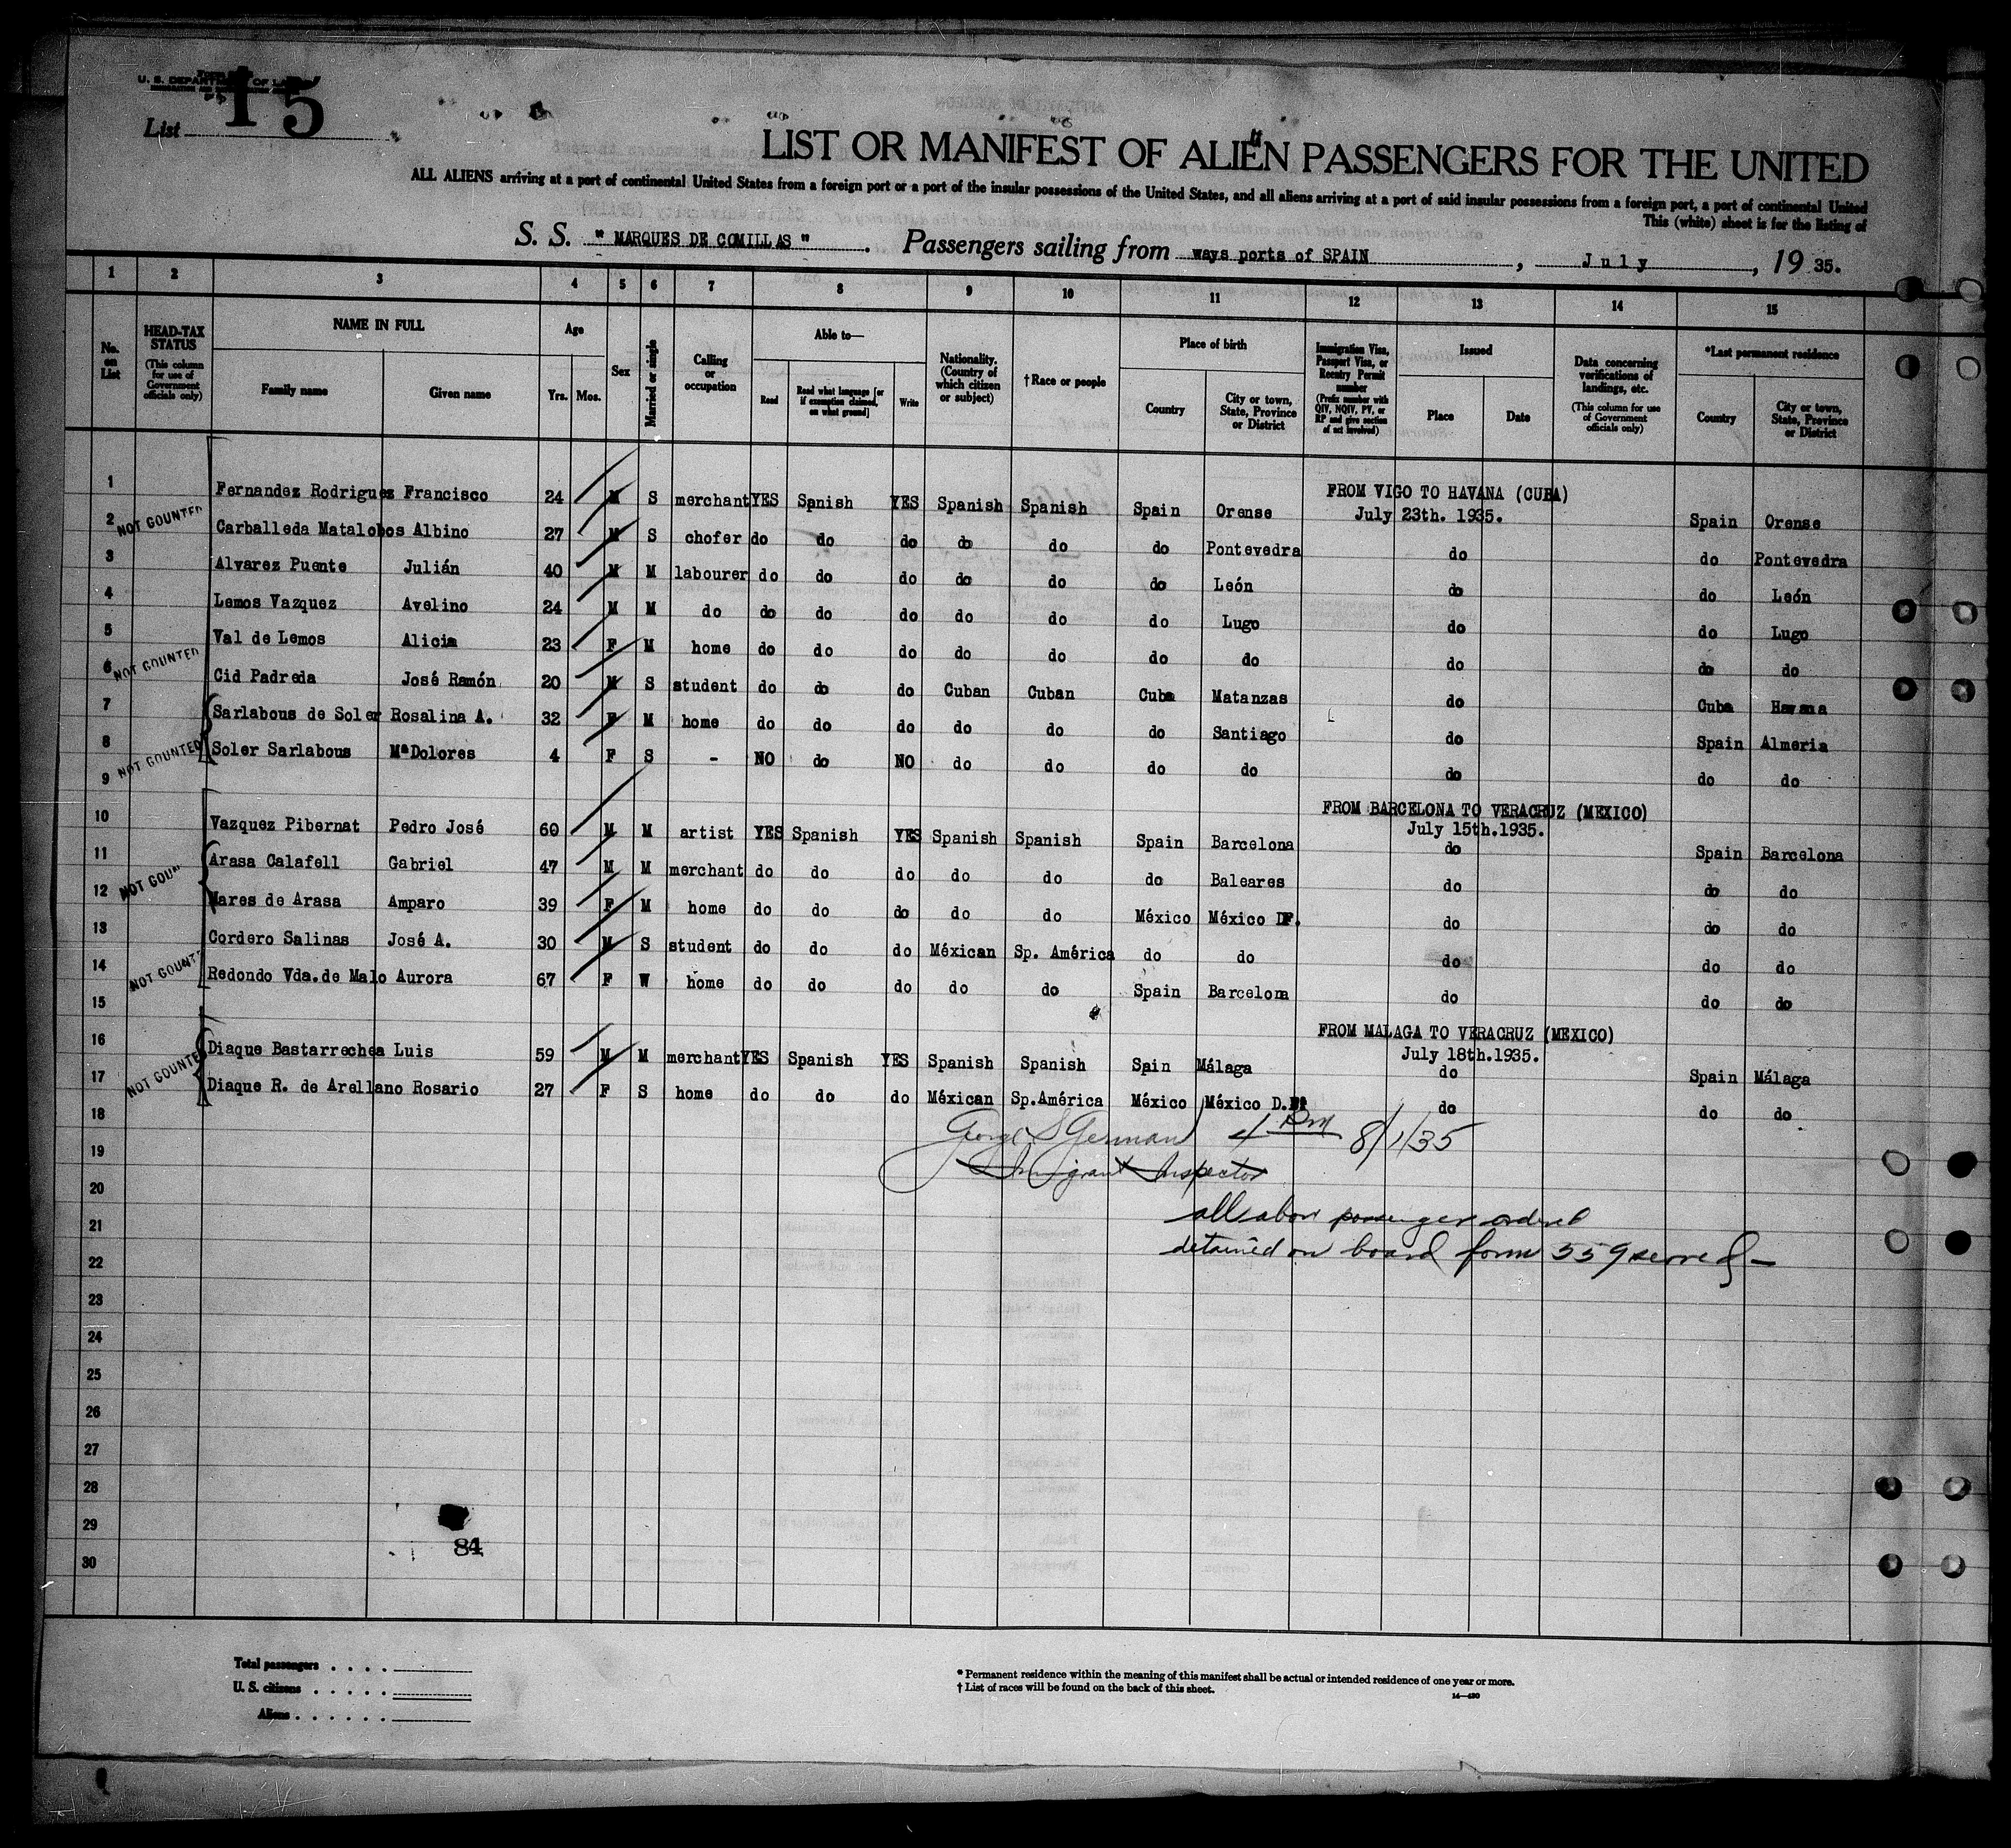 U. S. DEPARTMENT OF LABOR
List 15
LIST OR MANIFEST OF ALIEN PASSENGERS FOR THE UNITED
ALL ALIENS arriving at a port of continental United States from a foreign port or a port of the insular possessions of the United States, and all aliens arriving at a port of said insular possessions from a foreign port, a port of continental United
This (white) sheet is for the listing of
S. S. " MARQUES DE COMILLAS " . Passengers sailing from ways ports of SPAIN , July , 19 35.
1 2 3 4 5 6 7 8 9 10 11 12 13 14 15
No. on List
HEAD-TAX STATUS
(This column for use of Government officials only)
NAME IN FULL
Family name Given name
Age
Yrs. Mos.
Sex
Married or single
Calling or occupation
Able to—
Read Read what language [or if exemption claimed, on what ground] Write
Nationality. (Country of which citizen or subject)
†Race or people
Place of birth
Country City or town, State, Province or District
Immigration Visa, Passport Visa, or Reentry Permit number
(Prefix number with QIV, NQIV, PV, or RP and give section of act involved)
Issued
Place Date
Data concerning verifications of landings, etc.
(This column for use of Government officials only)
*Last permanent residence
Country City or town, State, Province or District
FROM VIGO TO HAVANA (CUBA)
1 Fernandez Rodriguez Francisco 24 M S merchant YES Sanish YES Spanish Spanish Spain Orense July 23th. 1935. Spain Orense
NOT COUNTED
2 Carballeda Matalobos Albino 27 M S chofer do do do do do do Pontevedra do do Pontevedra
3 Alvarez Puente Julián 40 M M labourer do do do do do do León do do León
4 Lemos Vazquez Avelino 24 M M do do do do do do do Lugo do do Lugo
5 Val de Lemos Alicia 23 F M home do do do do do do do do do do
NOT COUNTED
6 Cid Padreda José Ramón 20 M S student do do do Cuban Cuban Cuba Matanzas do Cuba Havana
7 Sarlabous de Soler Rosalina A. 32 F M home do do do do do do Santiago do Spain Almeria
8 Soler Sarlabous Mª Dolores 4 F S - NO do NO do do do do do do do
NOT COUNTED
9
FROM BARCELONA TO VERACRUZ (MEXICO)
July 15th.1935.
10 Vazquez Pibernat Pedro José 60 M M artist YES Spanish YES Spanish Spanish Spain Barcelona do Spain Barcelona
11 Arasa Calafell Gabriel 47 M M merchant do do do do do do Baleares do do do
NOT COUN
12 Mares de Arasa Amparo 39 F M home do do do do do México México DF. do do do
13 Cordero Salinas José A. 30 M S student do do do Méxican Sp. América do do do do do
NOT COUNT
14 Redondo Vda.de Malo Aurora 67 F W home do do do do do Spain Barcelona do do do
15
FROM MALAGA TO VERACRUZ (MEXICO)
July 18th.1935.
16 Diaque Bastarrechea Luis 59 M M merchant YES Spanish YES Spanish Spanish Spain Málaga do Spain Málaga
NOT COUNTED
17 Diaque R. de Arellano Rosario 27 F S home do do do Méxican Sp.América México México D.F. do do do
18
George S German 4 Pm 8/1/35
19
Imigrant Inspector
20
all above passenger ordered
21
detained on board form 559 served —
22
23
24
25
26
27
28
29
84
30
Total passengers . . . .
U. S. citizens . . . . .
Aliens . . . . . .
* Permanent residence within the meaning of this manifest shall be actual or intended residence of one year or more.
† List of races will be found on the back of this sheet.
14—430